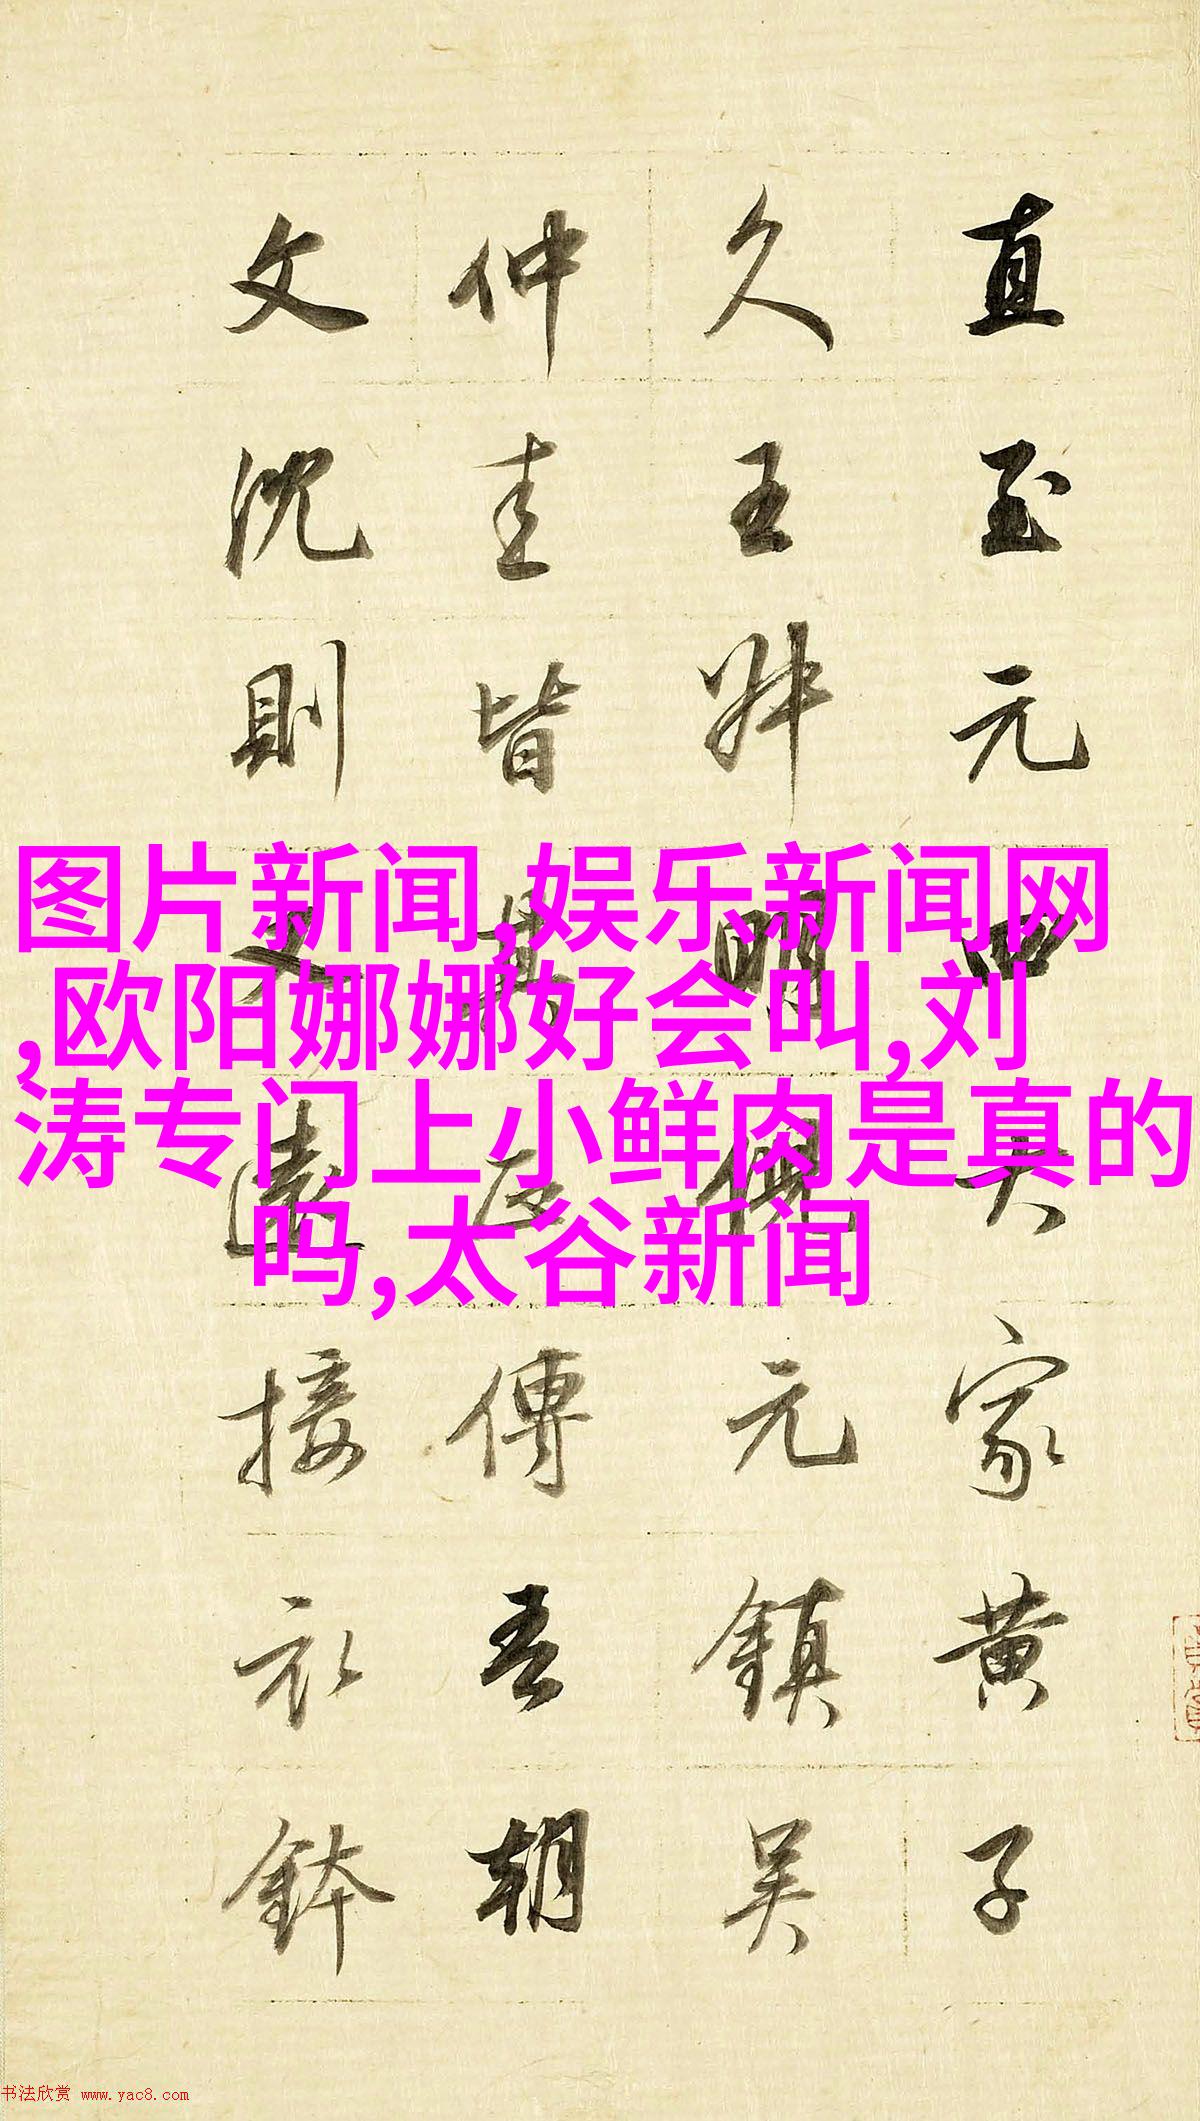 直至元四大家黄子
久王叔明倪元鎮吴
仲圭皆其正傳吾朝
文沈則又遠接衣鉢
图片新闻,娱乐新闻网
,欧阳娜娜好会叫,刘
涛专门上小鲜肉是真的
吗,太谷新闻
书法欣赏 www.yac8.com